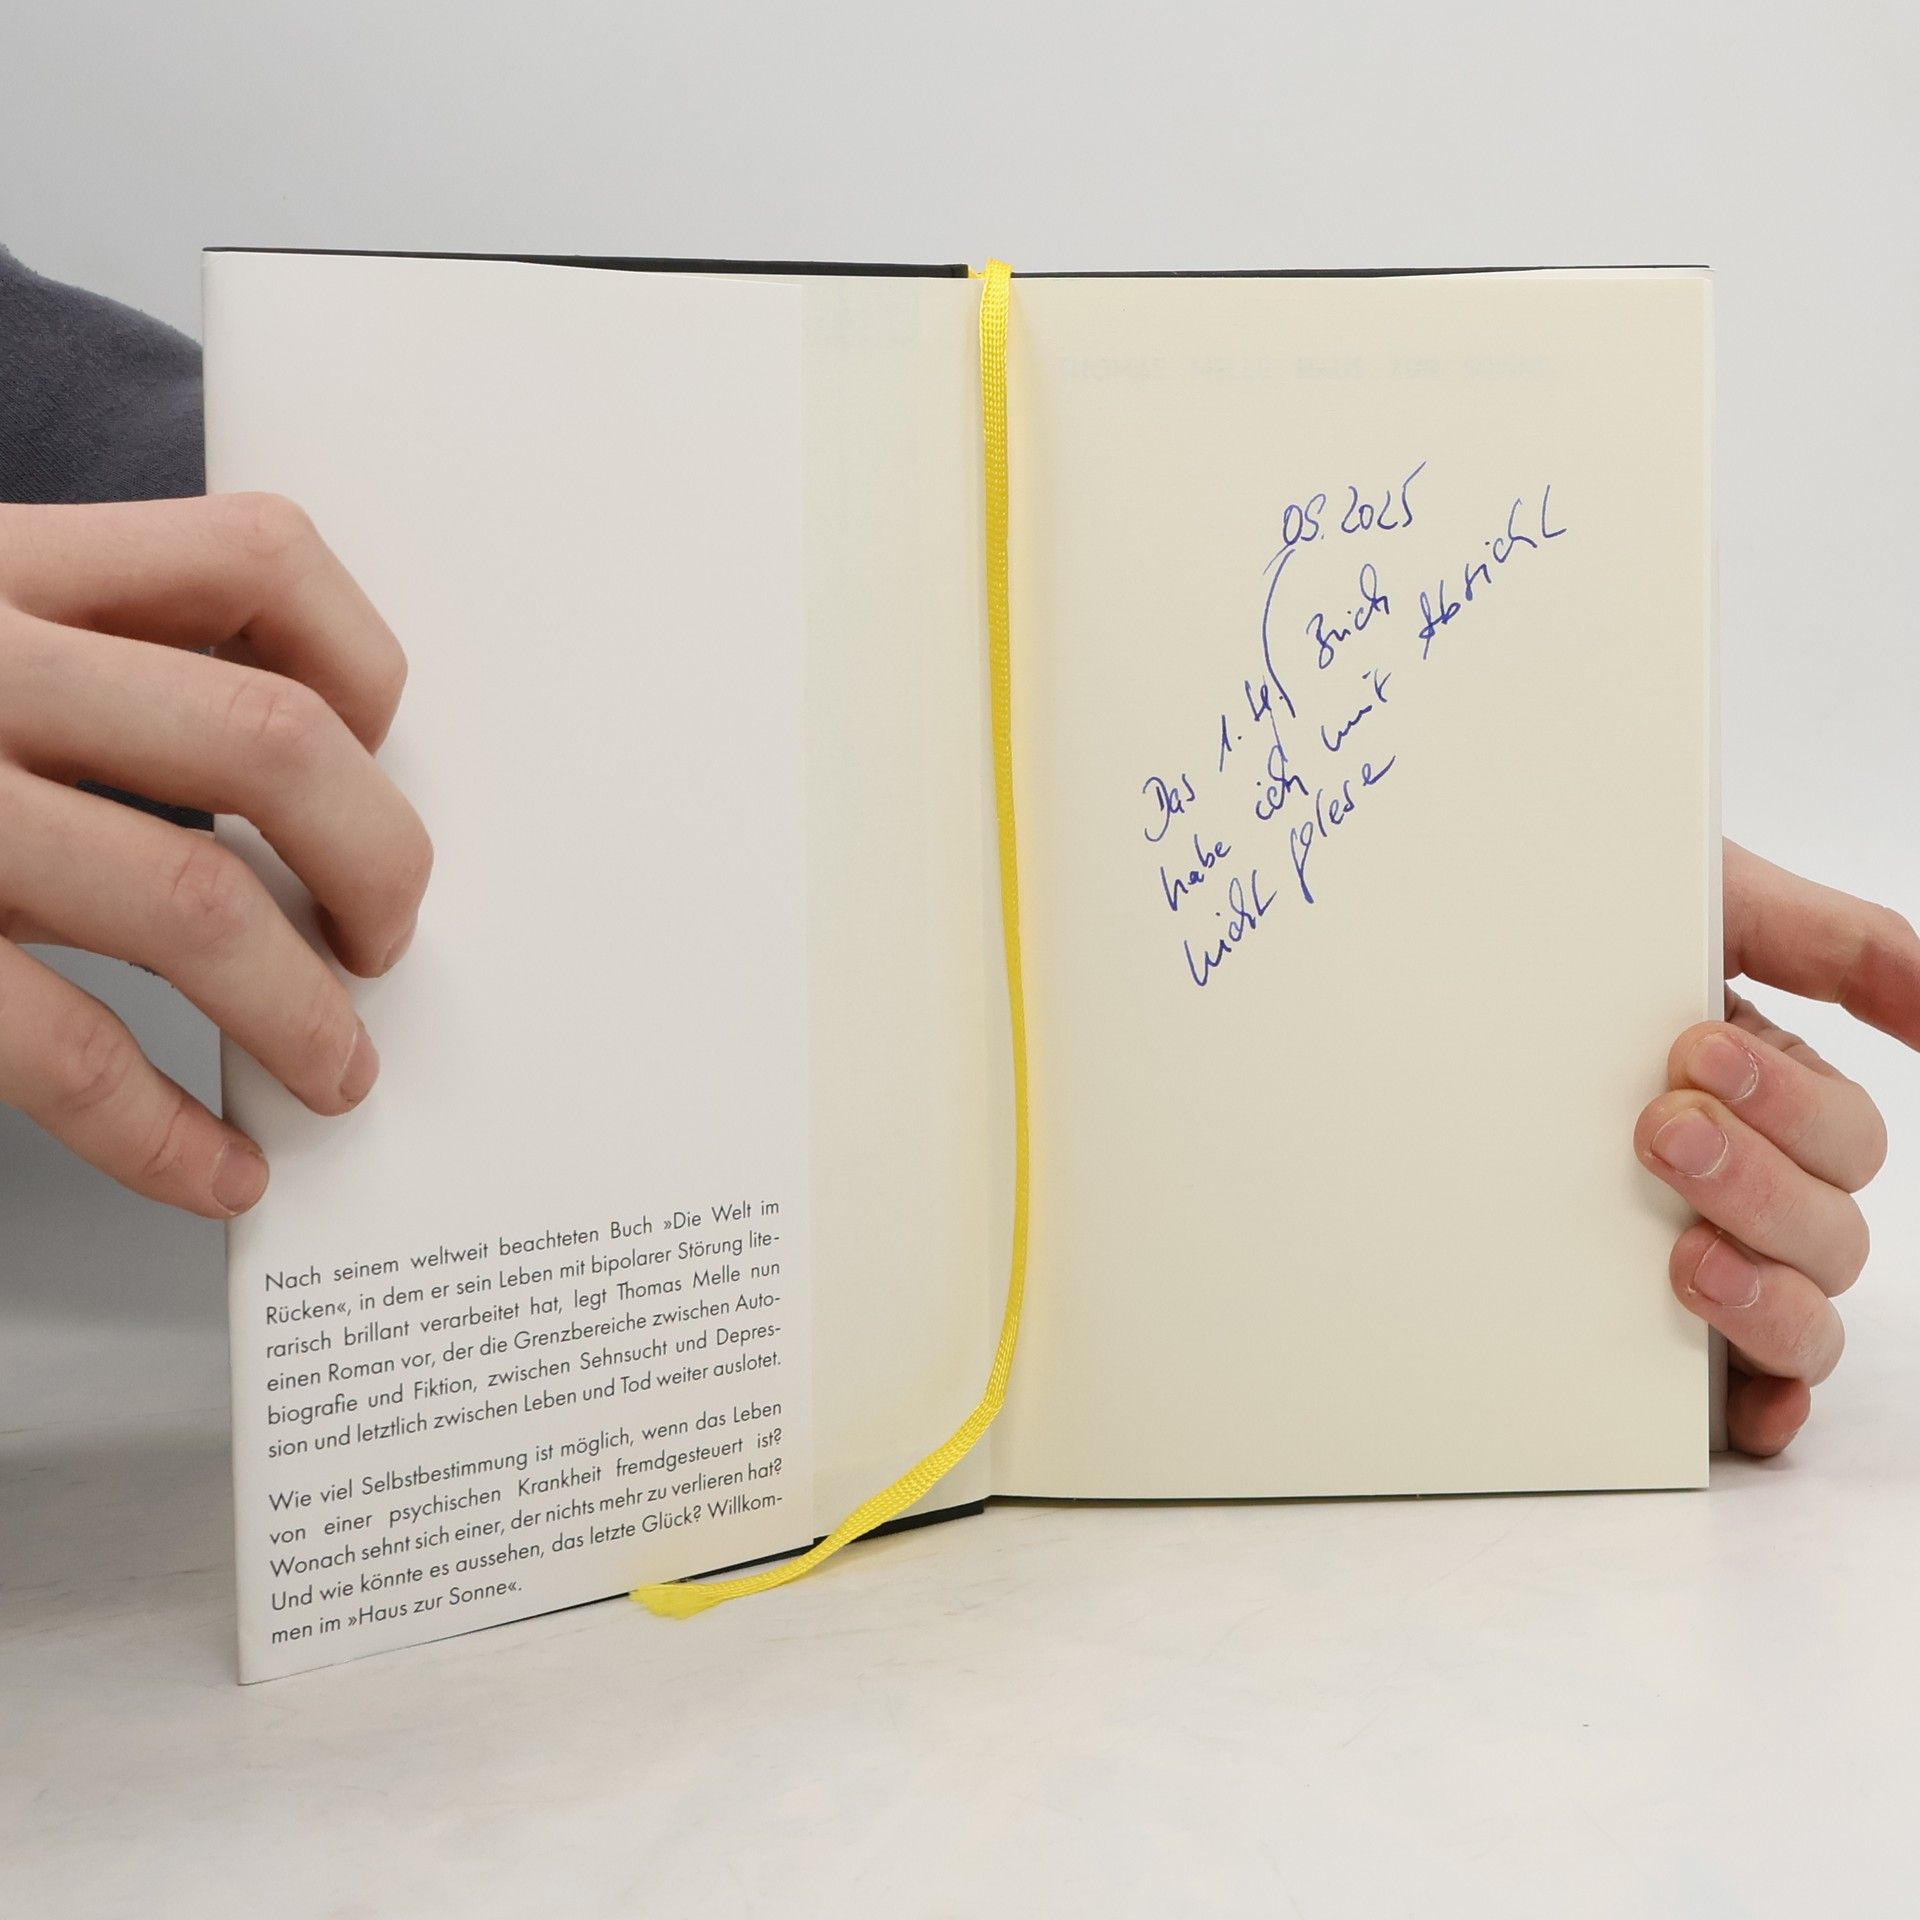 Nach seinem weltweit beachteten Buch »Die Welt im
Rücken«, in dem er sein Leben mit bipolarer Störung lite-
rarisch brillant verarbeitet hat, legt Thomas Melle nun
einen Roman vor, der die Grenzbereiche zwischen Auto-
biografie und Fiktion, zwischen Sehnsucht und Depres-
sion und letztlich zwischen Leben und Tod weiter auslotet.
Wie viel Selbstbestimmung ist möglich, wenn das Leben
von einer psychischen Krankheit fremdgesteuert ist?
Wonach sehnt sich einer, der nichts mehr zu verlieren hat?
Und wie könnte es aussehen, das letzte Glück? Willkom-
men im »Haus zur Sonne«.
2025
Das 1.
habe ich mit Absicht
nicht gelese